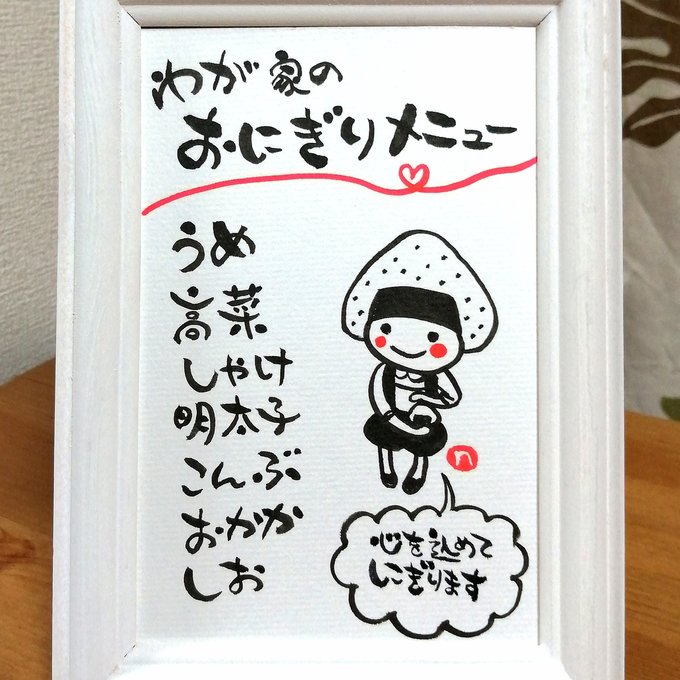 わが家の
おにぎりメニュー
うめ
高菜
しゃけ
明太子
こんぶ
おかか
しお
心を込めて
にぎります